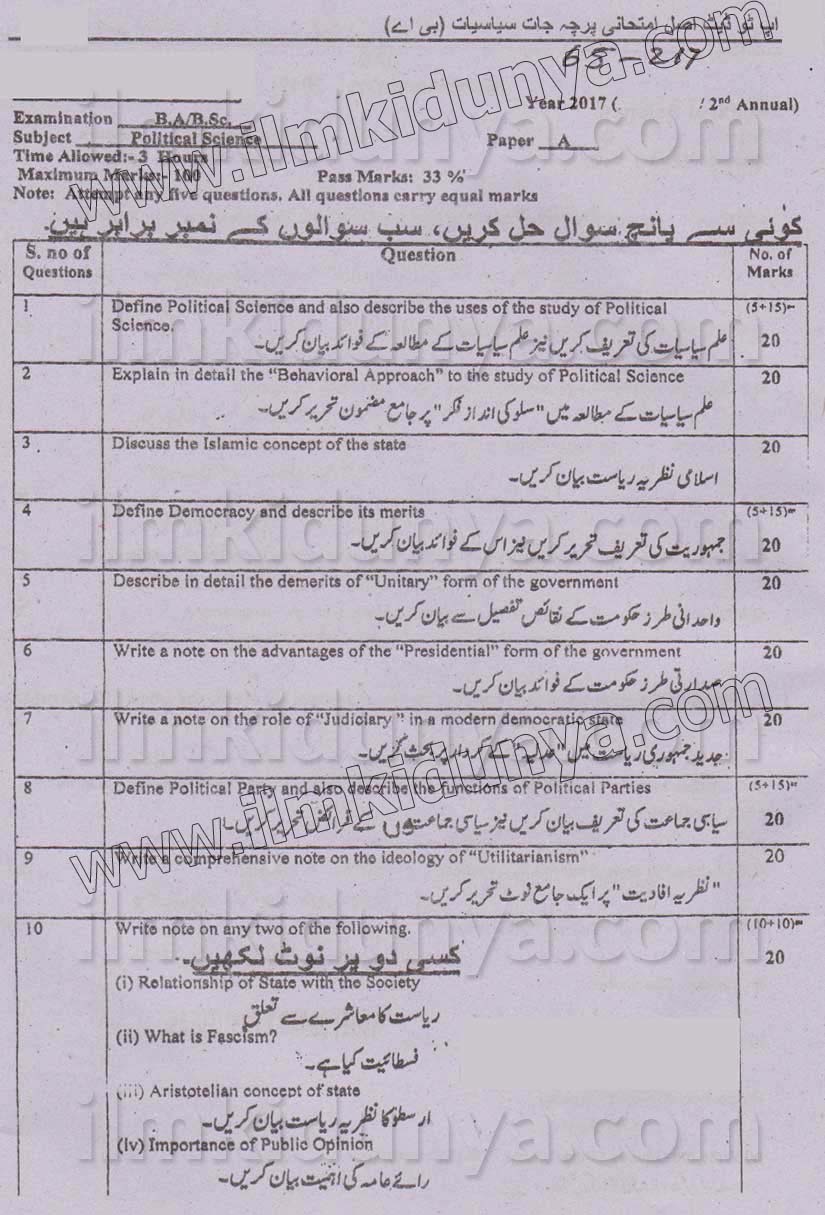 اپ ٹو ڈیٹ اصل امتحانی پرچہ جات سیاسیات (بی اے)
Year 2017 ( 2nd Annual)
Examination B.A/B.Sc.
Subject Political Science Paper A
Time Allowed:- 3 Hours
Maximum Marks:- 100 Pass Marks: 33 %
Note: Attempt any five questions. All questions carry equal marks
کوئی سے پانچ سوال حل کریں، سب سوالوں کے نمبر برابر ہیں۔
S. no of Questions Question No. of Marks
1 Define Political Science and also describe the uses of the study of Political (5+15)=
Science. 20
علم سیاسیات کی تعریف کریں نیز علم سیاسیات کے مطالعہ کے فوائد بیان کریں۔
2 Explain in detail the “Behavioral Approach” to the study of Political Science 20
علم سیاسیات کے مطالعہ میں "سلوکی انداز فکر" پر جامع مضمون تحریر کریں۔
3 Discuss the Islamic concept of the state 20
اسلامی نظریہ ریاست بیان کریں۔
4 Define Democracy and describe its merits (5+15)=
جمہوریت کی تعریف تحریر کریں نیز اس کے فوائد بیان کریں۔ 20
5 Describe in detail the demerits of “Unitary” form of the government 20
واحدانی طرز حکومت کے نقائص تفصیل سے بیان کریں۔
6 Write a note on the advantages of the “Presidential” form of the government 20
صدارتی طرز حکومت کے فوائد بیان کریں۔
7 Write a note on the role of “Judiciary” in a modern democratic state 20
جدید جمہوری ریاست میں "عدلیہ" کے کردار پر بحث کریں۔
8 Define Political Party and also describe the functions of Political Parties (5+15)=
سیاسی جماعت کی تعریف بیان کریں نیز سیاسی جماعتوں کے فرائض تحریر کریں۔ 20
9 Write a comprehensive note on the ideology of “Utilitarianism” 20
"نظریہ افادیت" پر ایک جامع نوٹ تحریر کریں۔
10 Write note on any two of the following. (10+10)=
کسی دو پر نوٹ لکھیں۔ 20
(i) Relationship of State with the Society
ریاست کا معاشرے سے تعلق
(ii) What is Fascism?
فسطائیت کیا ہے۔
(iii) Aristotelian concept of state
ارسطو کا نظریہ ریاست بیان کریں۔
(iv) Importance of Public Opinion
رائے عامہ کی اہمیت بیان کریں۔
www.ilmkidunya.com
www.ilmkidunya.com
ilmkidunya.com
ilmkidunya.com
ilmkidunya.com
ilmkidunya.com
ilmkidunya.com
ilmkidunya.com